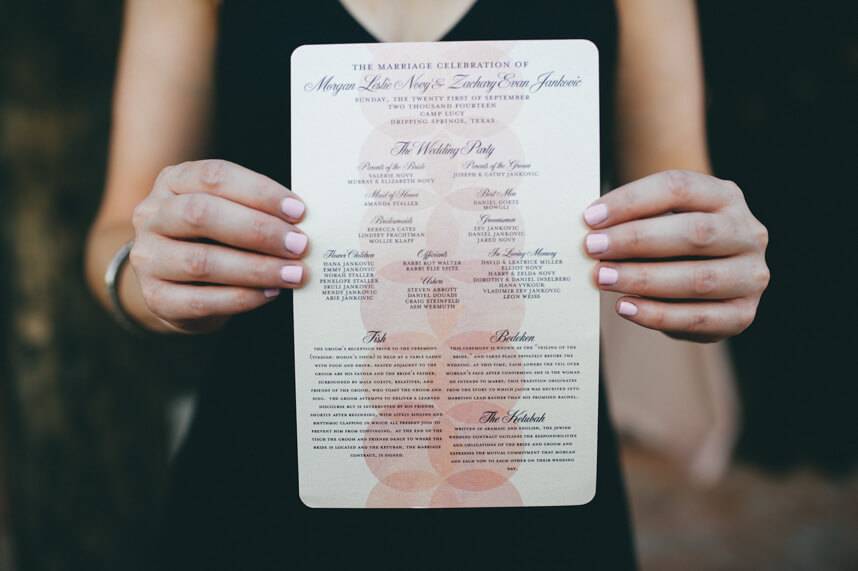 THE MARRIAGE CELEBRATION OF
Morgan Leslie Novy & Zachary Evan Jankovic
SUNDAY, THE TWENTY FIRST OF SEPTEMBER
TWO THOUSAND FOURTEEN
CAMP LUCY
DRIPPING SPRINGS, TEXAS
The Wedding Party
Parents of the Bride
VALERIE NOVY
MURRAY & ELIZABETH NOVY
Parents of the Groom
JOSEPH & CATHY JANKOVIC
Maid of Honor
AMANDA STALLER
Best Men
DANIEL GORTZ
MOWGLI
Bridesmaids
REBECCA CATES
LINDSEY FRACHTMAN
MOLLIE KLAFF
Groomsmen
EZV JANKOVIC
DANIEL JANKOVIC
JARED NOVY
Flower Children
HANA JANKOVIC
EMMY JANKOVIC
NORAH STALLER
PENELOPE STALLER
SRULI JANKOVIC
MENDY JANKOVIC
ARIE JANKOVIC
Officiants
RABBI ROY WALTER
RABBI ELIE SEITZ
Ushers
STEVEN ABBOTT
DANIEL DOUADI
CRAIG STEINFELD
ASH WERMUTH
In Loving Memory
DAVID & BEATRICE MILLER
ELLIOT NOVY
HARRY & ZELDA NOVY
DOROTHY & DANIEL INSELBERG
HANA VYKOUK
VLADIMIR EZV JANKOVIC
LEON WEISS
Tish
THE GROOM'S RECEPTION PRIOR TO THE CEREMONY
(YIDDISH: HOSEN'S TISH) IS HELD AT A TABLE LADEN
WITH FOOD AND DRINK. SEATED ADJACENT TO THE
GROOM ARE HIS FATHER AND THE BRIDE'S FATHER,
SURROUNDED BY MALE GUESTS, RELATIVES, AND
FRIENDS OF THE GROOM, WHO TOAST THE GROOM AND
SING. THE GROOM ATTEMPTS TO DELIVER A LEARNED
DISCOURSE BUT IS INTERRUPTED BY HIS FRIENDS
SHORTLY AFTER BEGINNING, WITH LIVELY SINGING AND
RHYTHMIC CLAPPING IN WHICH ALL PRESENT JOIN TO
PREVENT HIM FROM CONTINUING. AT THE END OF THE
TISCH THE GROOM AND FRIENDS DANCE TO WHERE THE
BRIDE IS LOCATED AND THE KETUBAH, THE MARRIAGE
CONTRACT, IS SIGNED.
Bedeken
THIS CEREMONY IS KNOWN AS THE "VEILING OF THE
BRIDE," AND TAKES PLACE PRIVATELY BEFORE THE
WEDDING. AT THIS TIME, ZACH LOWERS THE VEIL OVER
MORGAN'S FACE AFTER CONFIRMING SHE IS THE WOMAN
HE INTENDS TO MARRY; THIS TRADITION ORIGINATES
FROM THE STORY IN WHICH JACOB WAS DECEIVED INTO
MARRYING LEAH RATHER THAN HIS PROMISED RACHEL.
The Ketubah
WRITTEN IN ARAMAIC AND ENGLISH, THE JEWISH
WEDDING CONTRACT OUTLINES THE RESPONSIBILITIES
AND OBLIGATIONS OF THE BRIDE AND GROOM AND
EXPRESSES THE MUTUAL COMMITMENT THAT MORGAN
AND ZACH VOW TO EACH OTHER ON THEIR WEDDING
DAY.